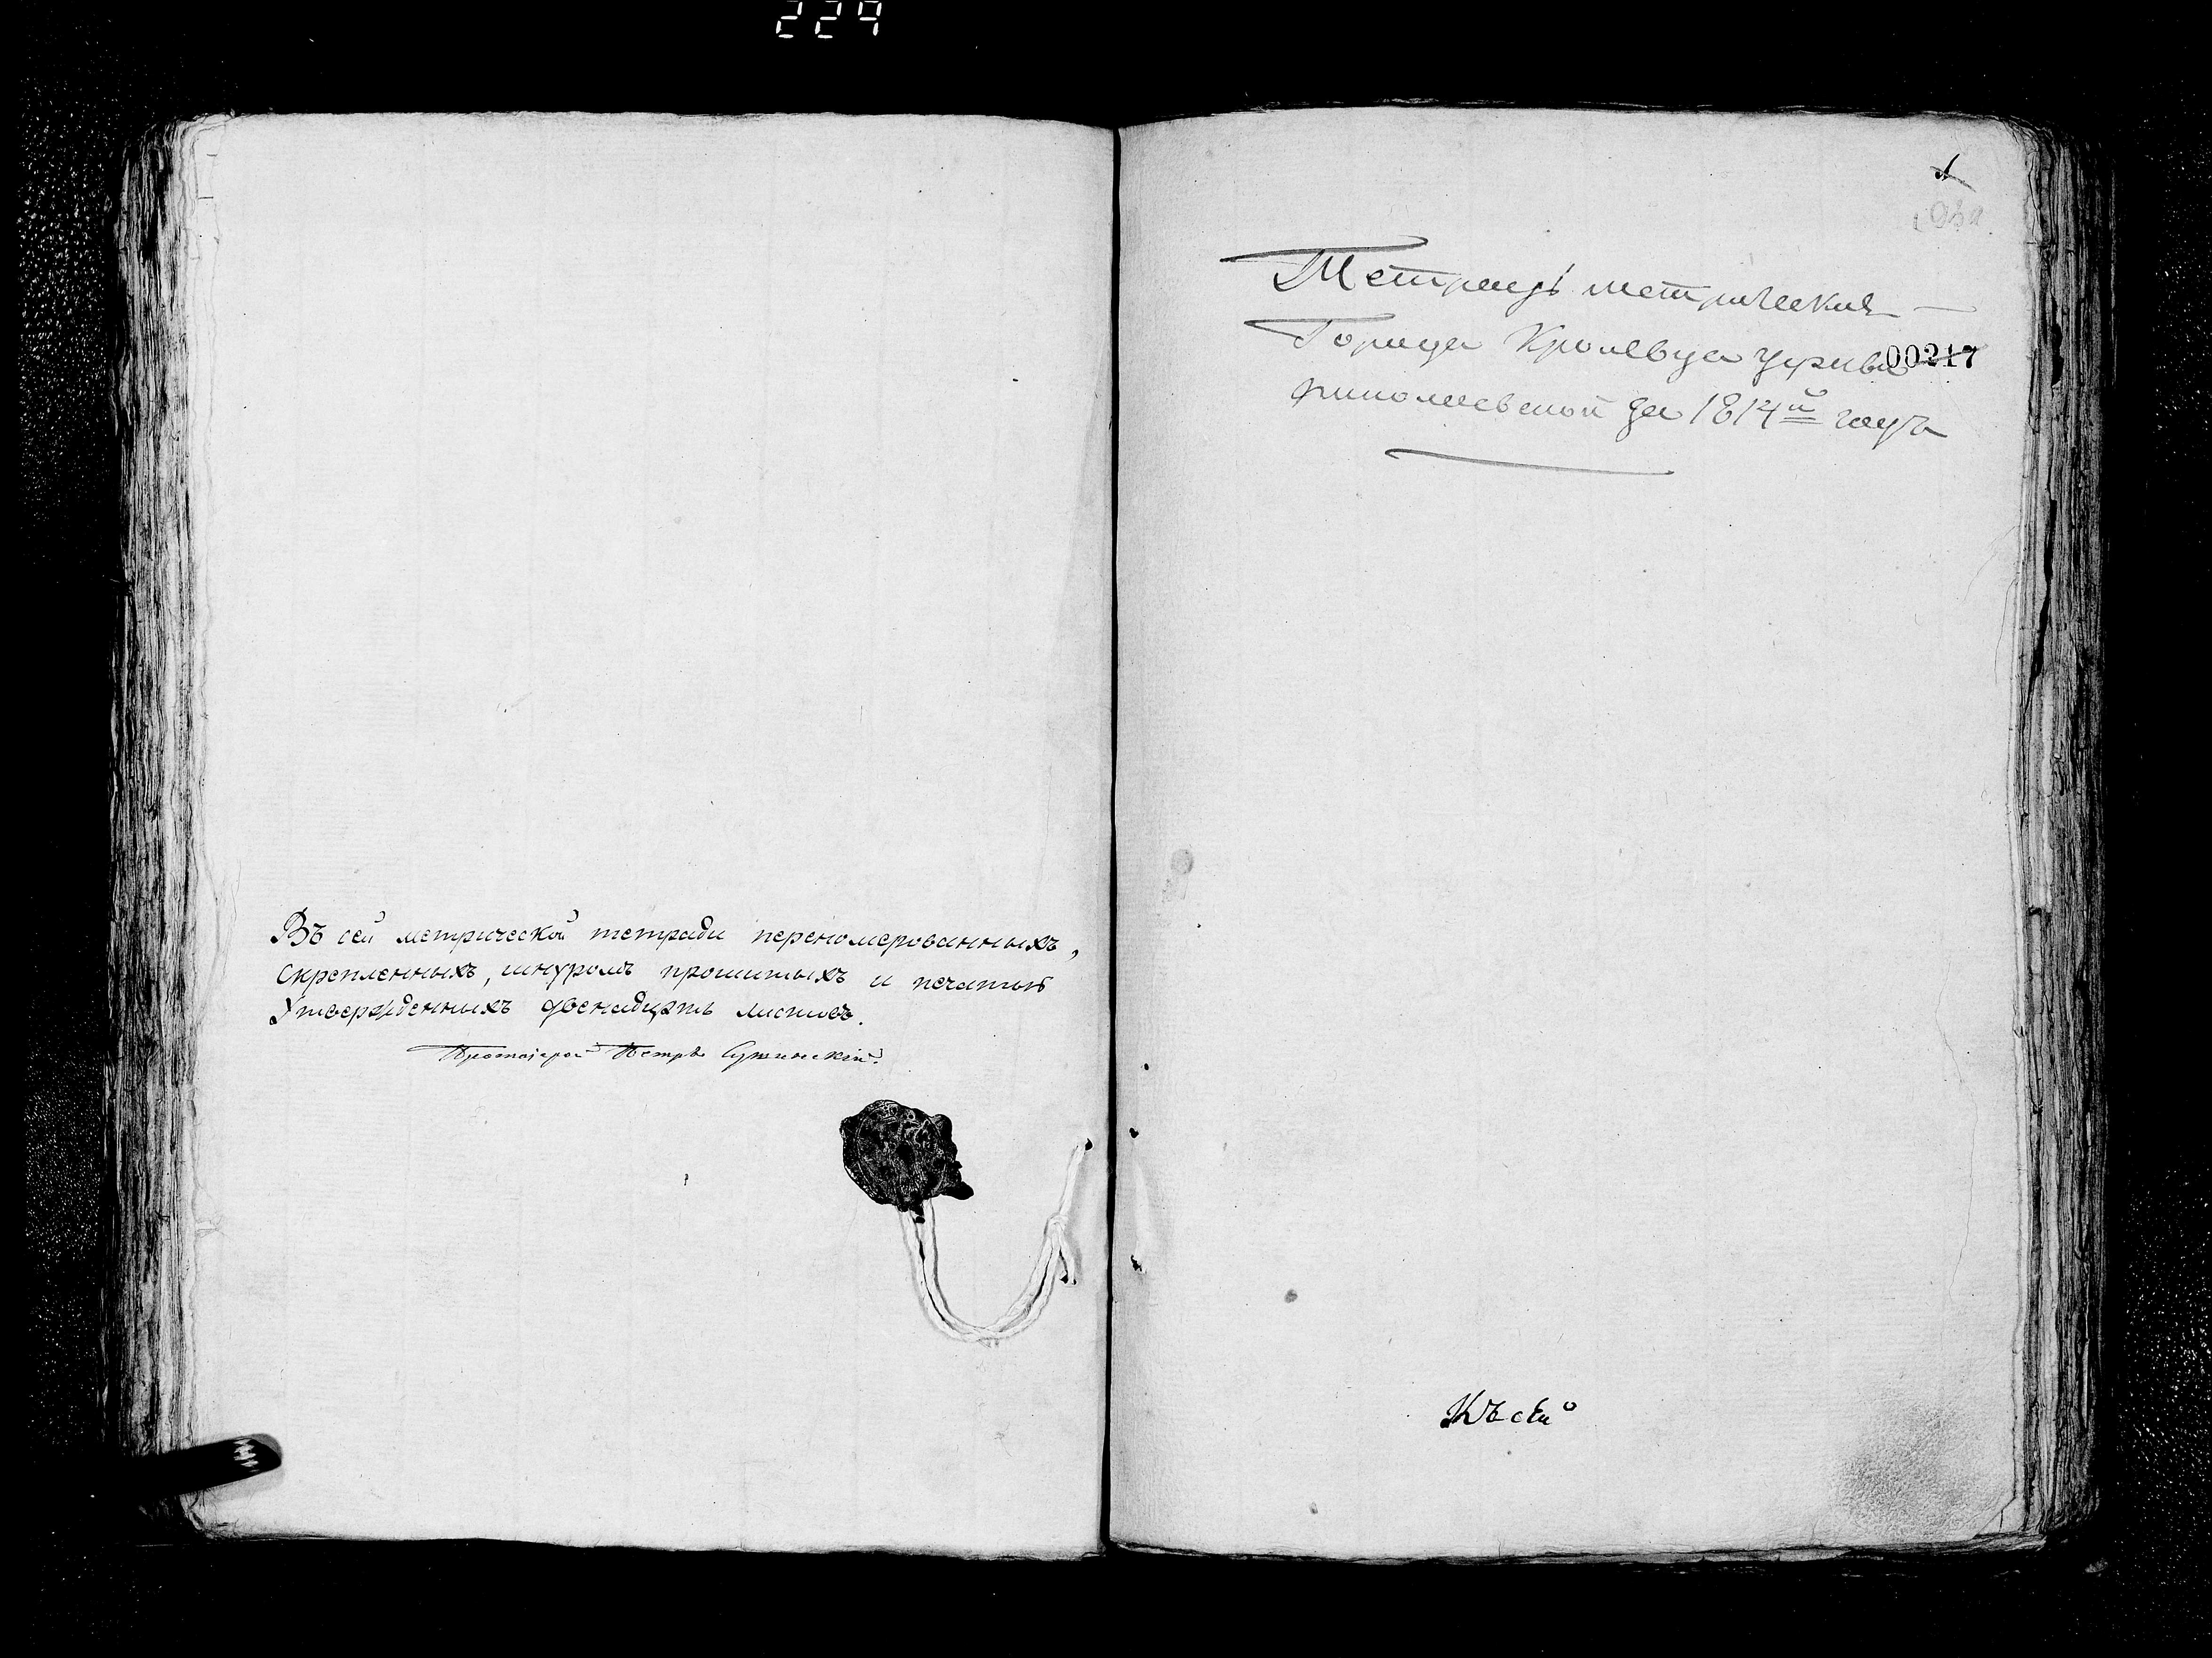 224
Въ сей метрической тетради переномерованныхъ,
скрепленныхъ, шнуромъ прошитыхъ и печатью
Утвержденныхъ двенадцать листовъ.
Протоіерей Петръ
1
Тетрадь метрическая
Города Кролевца церкви
00217
николаевской за 1814й годъ
Къ сей